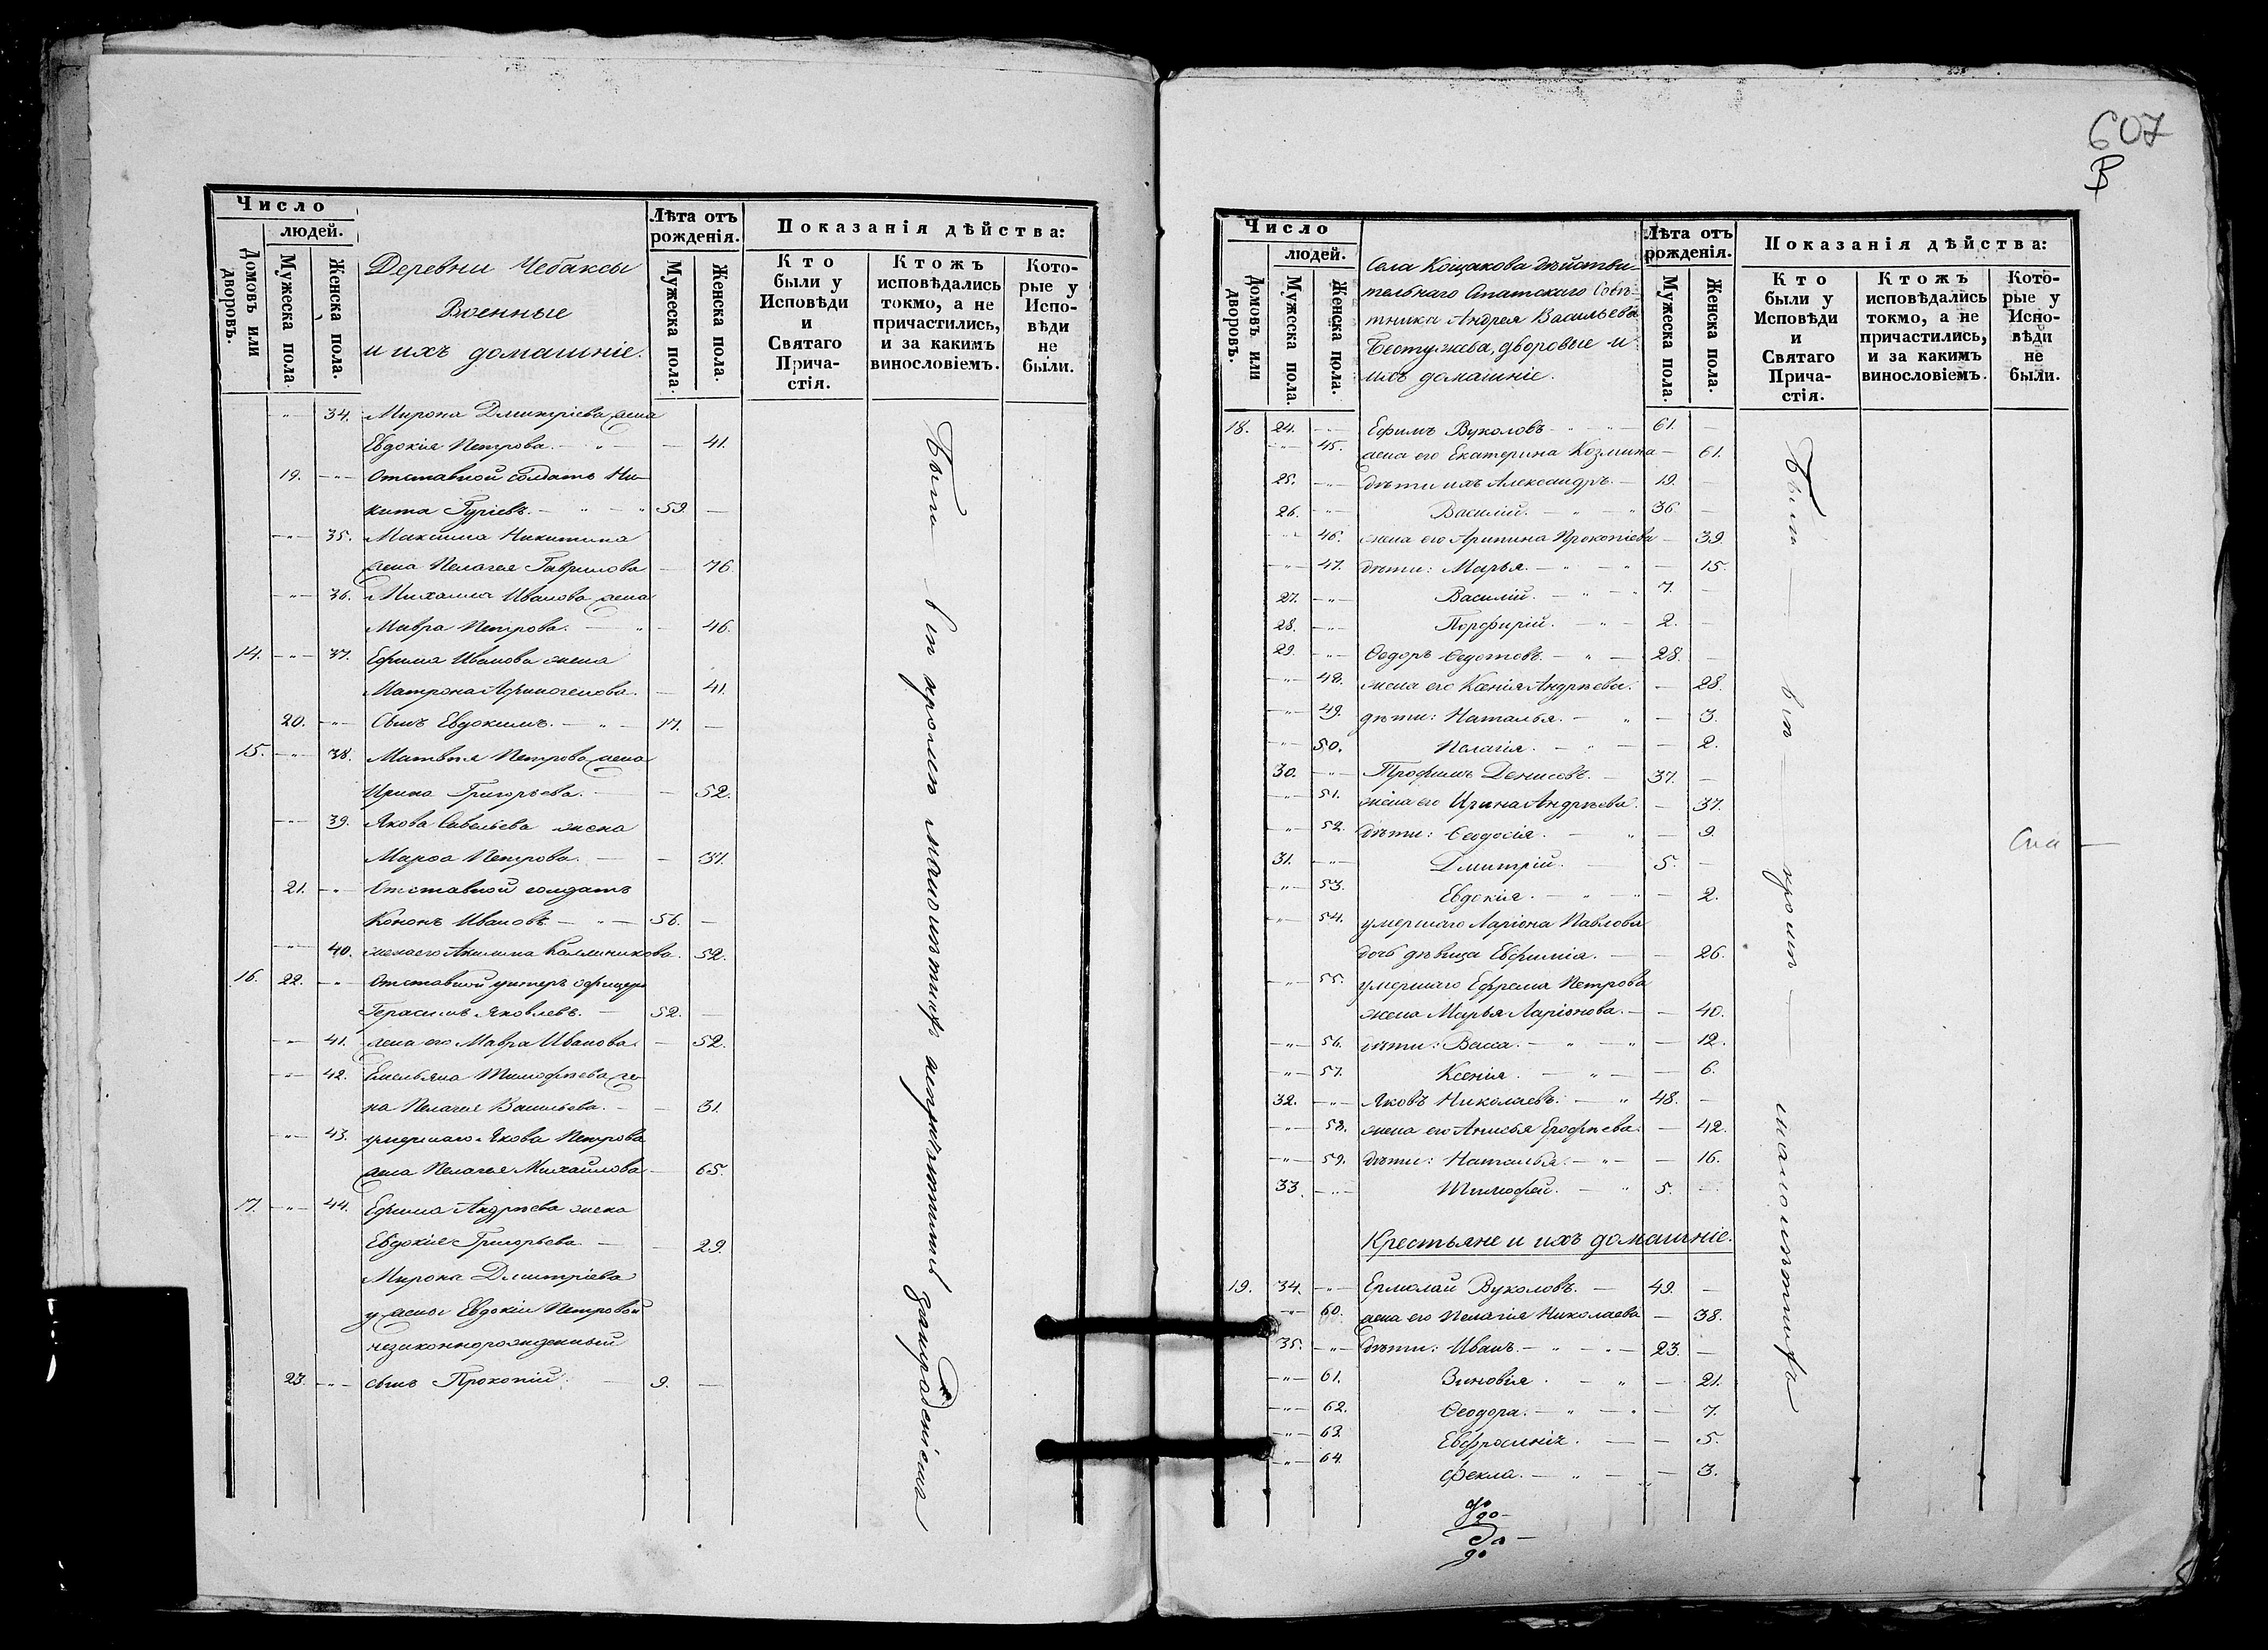 Число
людей.
Домовъ или дворовъ.
Мужеска пола
Женска пола.
Деревни Чебаксы
Военные
и ихъ домашніе.
Лѣта отъ рожденія.
Мужеска пола.
Женска пола.
Показанія дѣйства:
Кто были у Исповѣди и Святаго Причастія.
Ктожъ исповѣдались токмо, а не причастились, и за какимъ винословіемъ.
Которые у Исповѣди не были.
-"- 34. Мирона Дмитріева жена
Евдокія Петрова. - " - — 41.
19. -"- Отставной солдатъ Ни-
кита Гуріевъ. - " - " 59. —
-"- 35. Максима Никитина
жена Пелагея Гаврилова — 76.
-"- 36. Михаила Иванова жена
Мавра Петрова. — " — 46.
14. -"- 37. Ефима Иванова жена
Матрона Афиногенова. — 41.
20. -"- Сынъ Евдокимъ. - " - 17. —
15. -"- 38. Матвѣя Петрова жена
Ирина Григорьева. — — 52.
-"- 39. Якова Савельева жена
Марѳа Петрова. — — 37.
21. -"- Отставной солдатъ
Кононъ Ивановъ - " - 56. —
-"- 40. жена его Акилина Каллиникова. 52.
16. 22. -"- Отставной унтеръ офицеръ
Герасимъ Яковлевъ. — 52. —
-"- 41. жена его Мавра Иванова. — 52.
-"- 42. Емельяна Тимофѣева же-
на Пелагея Васильева. — — 31.
-"- 43. умершаго Якова Петрова
жена Пелагья Михайлова. — 65.
17. -"- 44. Ефима Андрѣева жена
Евдокія Григорьева. — — 29.
Мирона Дмитріева
у жены Евдокіи Петровой
незаконнорожденный
23. -"- сынъ Прокопій. — 9. —
607
Число
людей.
Домовъ или дворовъ.
Мужеска пола.
Женска пола.
Села Кощакова дѣйстви-
тельнаго Статскаго Совѣ-
тника Андрея Васильева
Бестужева, дворовые и
ихъ домашніе.
Лѣта отъ рожденія.
Мужеска пола.
Женска пола.
Показанія дѣйства:
Кто были у Исповѣди и Святаго Причастія.
Ктожъ исповѣдались токмо, а не причастились, и за какимъ винословіемъ.
Которые у Исповѣди не были.
18. 24. -"- Ефимъ Вуколовъ - " - 61. —
-"- 45. жена его Екатерина Козмина — 61.
25. -"- дѣти ихъ Александръ. — 19. —
26. -"- Василій. — " 36. —
-"- 46. жена его Арипина Прокопіева — 39.
-"- 47. дѣти: Марья. - " - " — 15.
27. -"- Василій. — " — " 7. —
28. -"- Порфирій. - " - 2. —
29. -"- Ѳедоръ Ѳедотовъ. - " - 28. —
-"- 48. жена его Ксенія Андрѣева. — 28.
-"- 49. дѣти: Наталья. - " — 3.
-"- 50. Пелагія. - " - — 2.
30. -"- Трофимъ Денисовъ. — 37. —
-"- 51. жена его Ирина Андрѣева. — 37.
-"- 52. дѣти: Ѳеодосія. — " — 9.
31. -"- Дмитрій. — 5. —
-"- 53. Евдокія. - " - " — 2.
-"- 54. умершаго Ларіона Павлова
дочь дѣвица Евфимія. — — 26.
-"- 55. умершаго Ефрема Петрова
жена Марья Ларіонова. — — 40.
-"- 56. дѣти: Васса. - " - " — 12.
-"- 57. Ксенія. — " — — 6.
32. -"- Яковъ Николаевъ. — " 48. —
-"- 58. жена его Анисья Ерофѣева. — 42.
-"- 59. дѣти: Наталья. - " - — 16.
33. -"- Тимофей. — " 5. —
Крестьяне и ихъ домашніе.
19. 34. -"- Ермолай Вуколовъ. — 49. —
-"- 60. жена его Пелагія Николаева — 38.
35. -"- дѣти: Иванъ. - " - " - 23. —
-"- 61. Зиновія. - " — 21.
-"- 62. Ѳеодора. - " - " — 7.
-"- 63 Евфросинія. — — 5.
-"- 64. Фекла. - " - — 3.